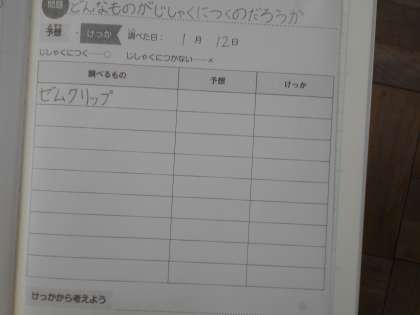 問題 どんなものがじしゃくにつくのだろうか
予想・けっか 調べた日： 1月 12日
じしゃくにつく……○ じしゃくにつかない……×
調べるもの 予想 けっか
ゼムクリップ
けっかから考えよう